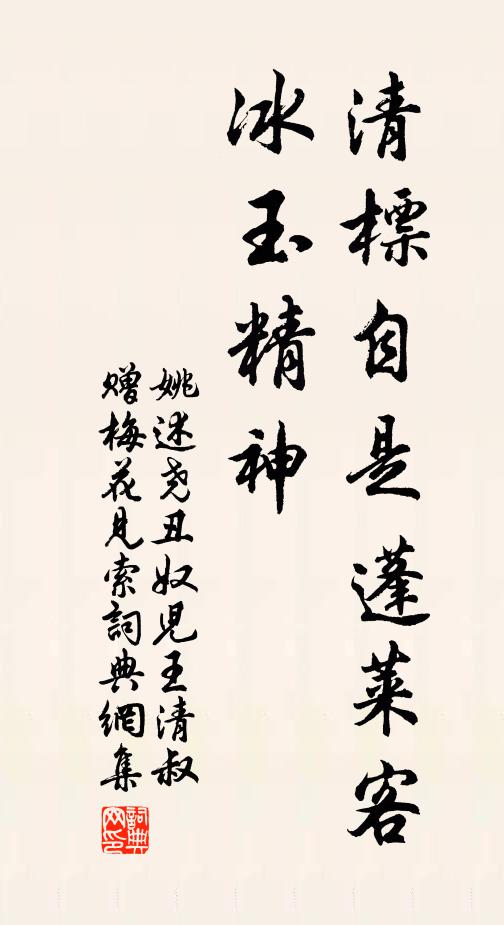 清標自是蓬萊客
冰玉精神
姚述堯丑奴兒王清叔
贈梅花見索詞典網集
詞典
网印